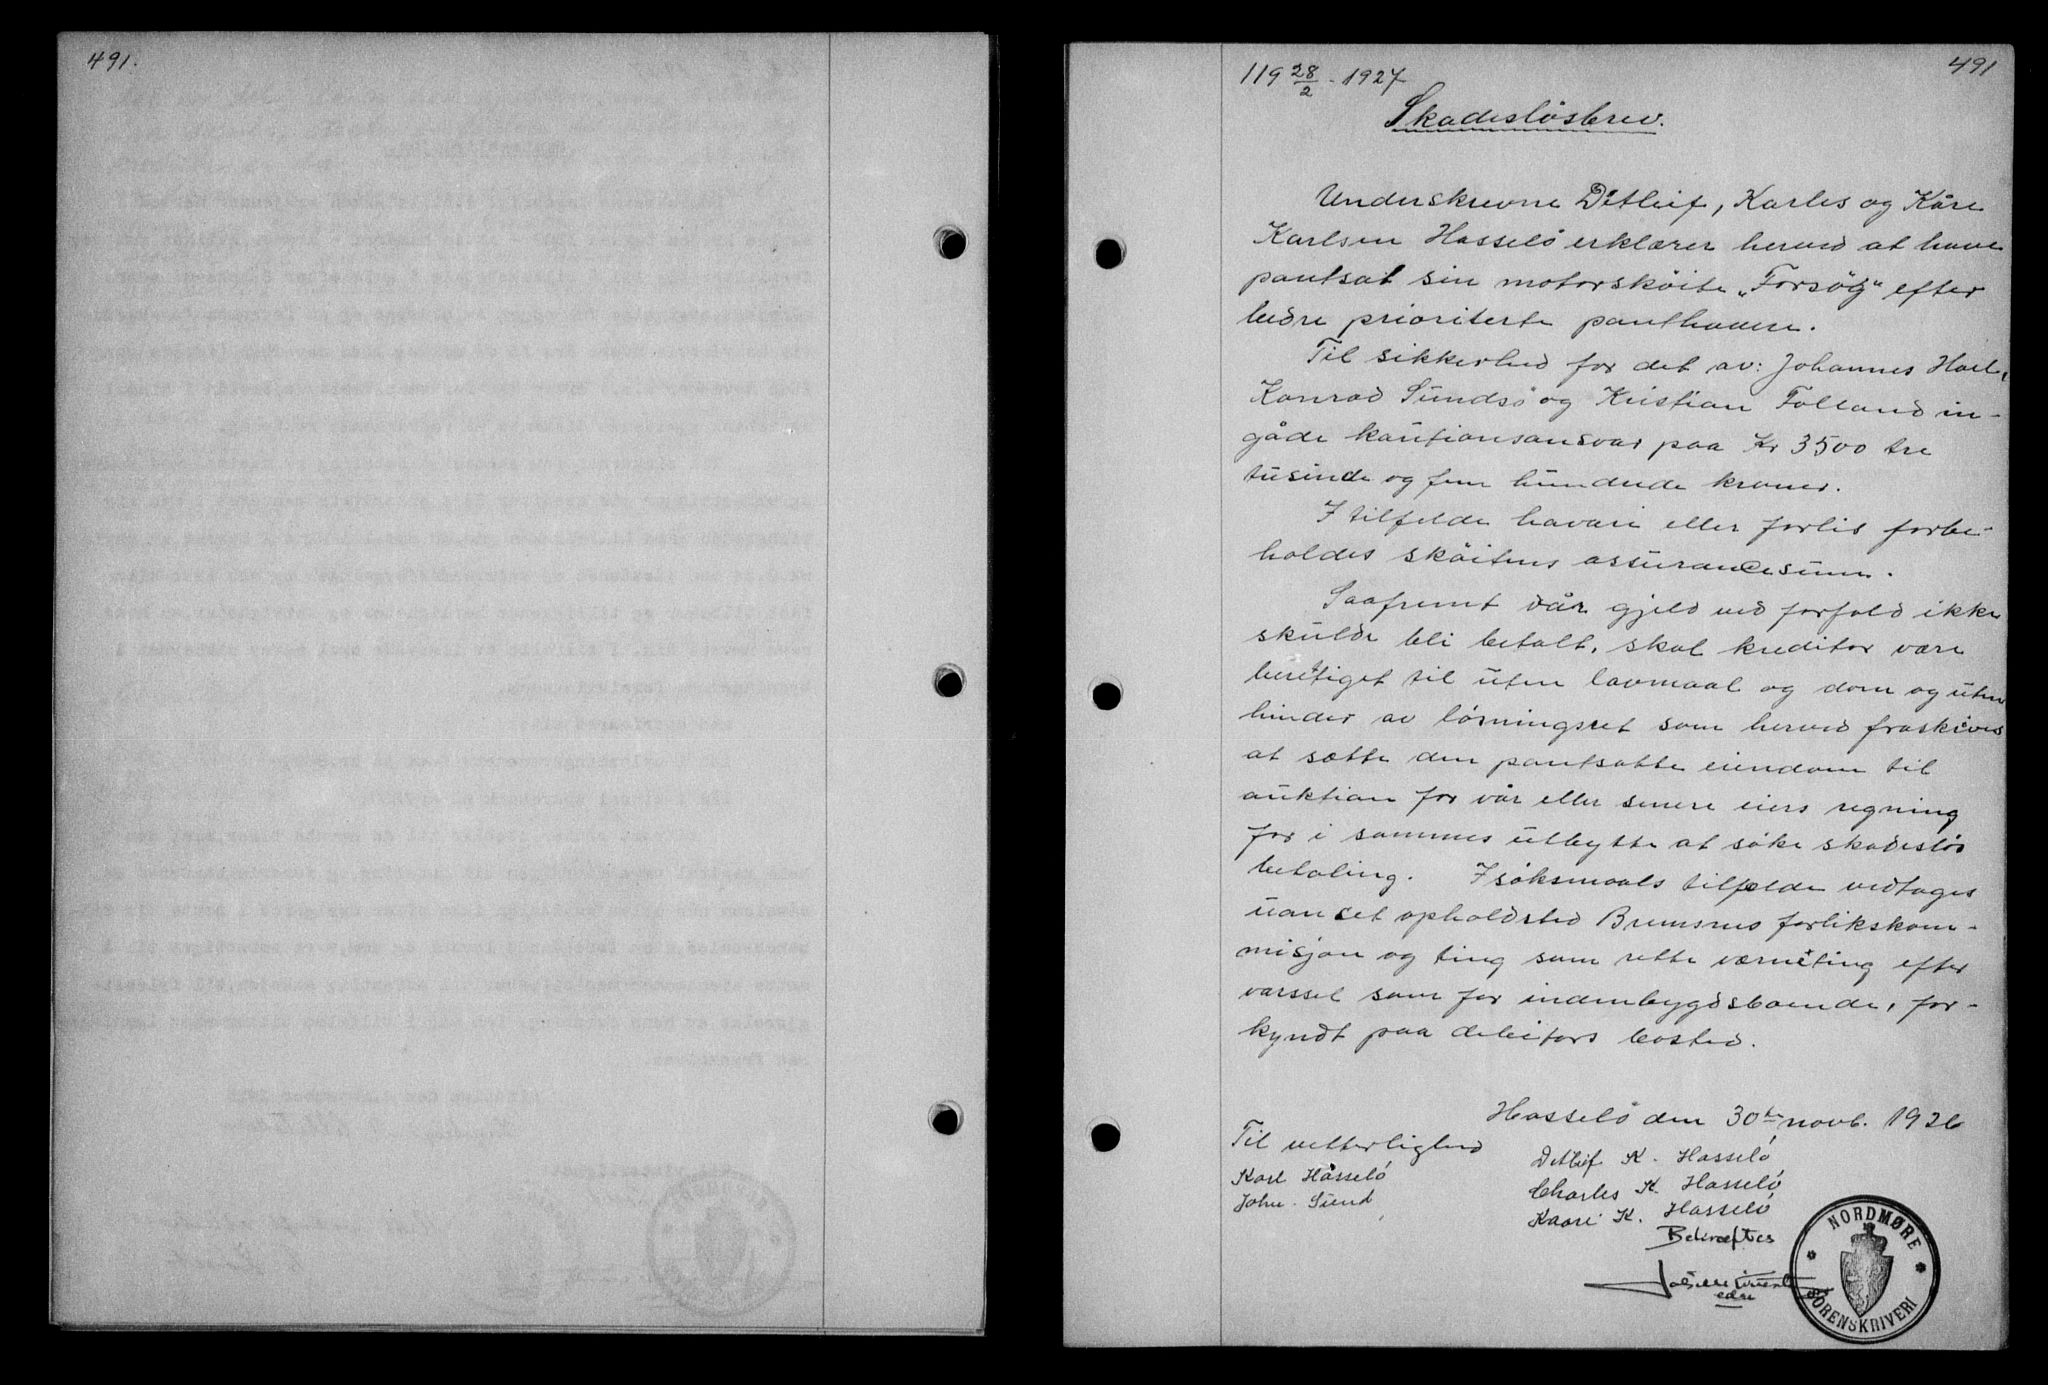 491.
491
119 28/2 - 1927
Skadesløsbrev.
Underskrevne Detleif, Karles og Kåre
Karlsen Hasselö erklærer herved at have
pantsat sin motorskøite „Forsög" efter
bedre prioriterte panthavere.
Til sikkerhed for det av: Johannes
Konrad Sundsö og Kristian Folland in-
gåde kautionsansvar paa Kr 3500 tre
tusinde og fem hundrede kroner.
I tilfelde havari eller forlis forbe-
holdes skøitens assurancesum.
Saafremt vår gjeld ved forfald ikke
skulde bli betalt, skal kreditor være
berettiget til uten lavmaal og dom og uten
hinder av løsningsret som herved fraskives
at sætte den pantsatte eiendom til
auktion for vår eller senere eiers regning
for i sammes utbytte at søke skadesløs
betaling. I søksmaals tilfelde vedtages
uanset opholdsted Bremsnes forlikskom-
misjon og ting som rette værneting efter
varssel som for indenbygdsboende, for-
kyndt paa debitors bosted.
Hasselö den 30te novb. 1926
Til vetterlighed
Karl Hasselö
John Sund
Detlief K. Hasselö
Charles K. Hasselö
Kaare K. Hasselö
Bekræftes
edsv
NORDMØRE
SORENSKRIVERI